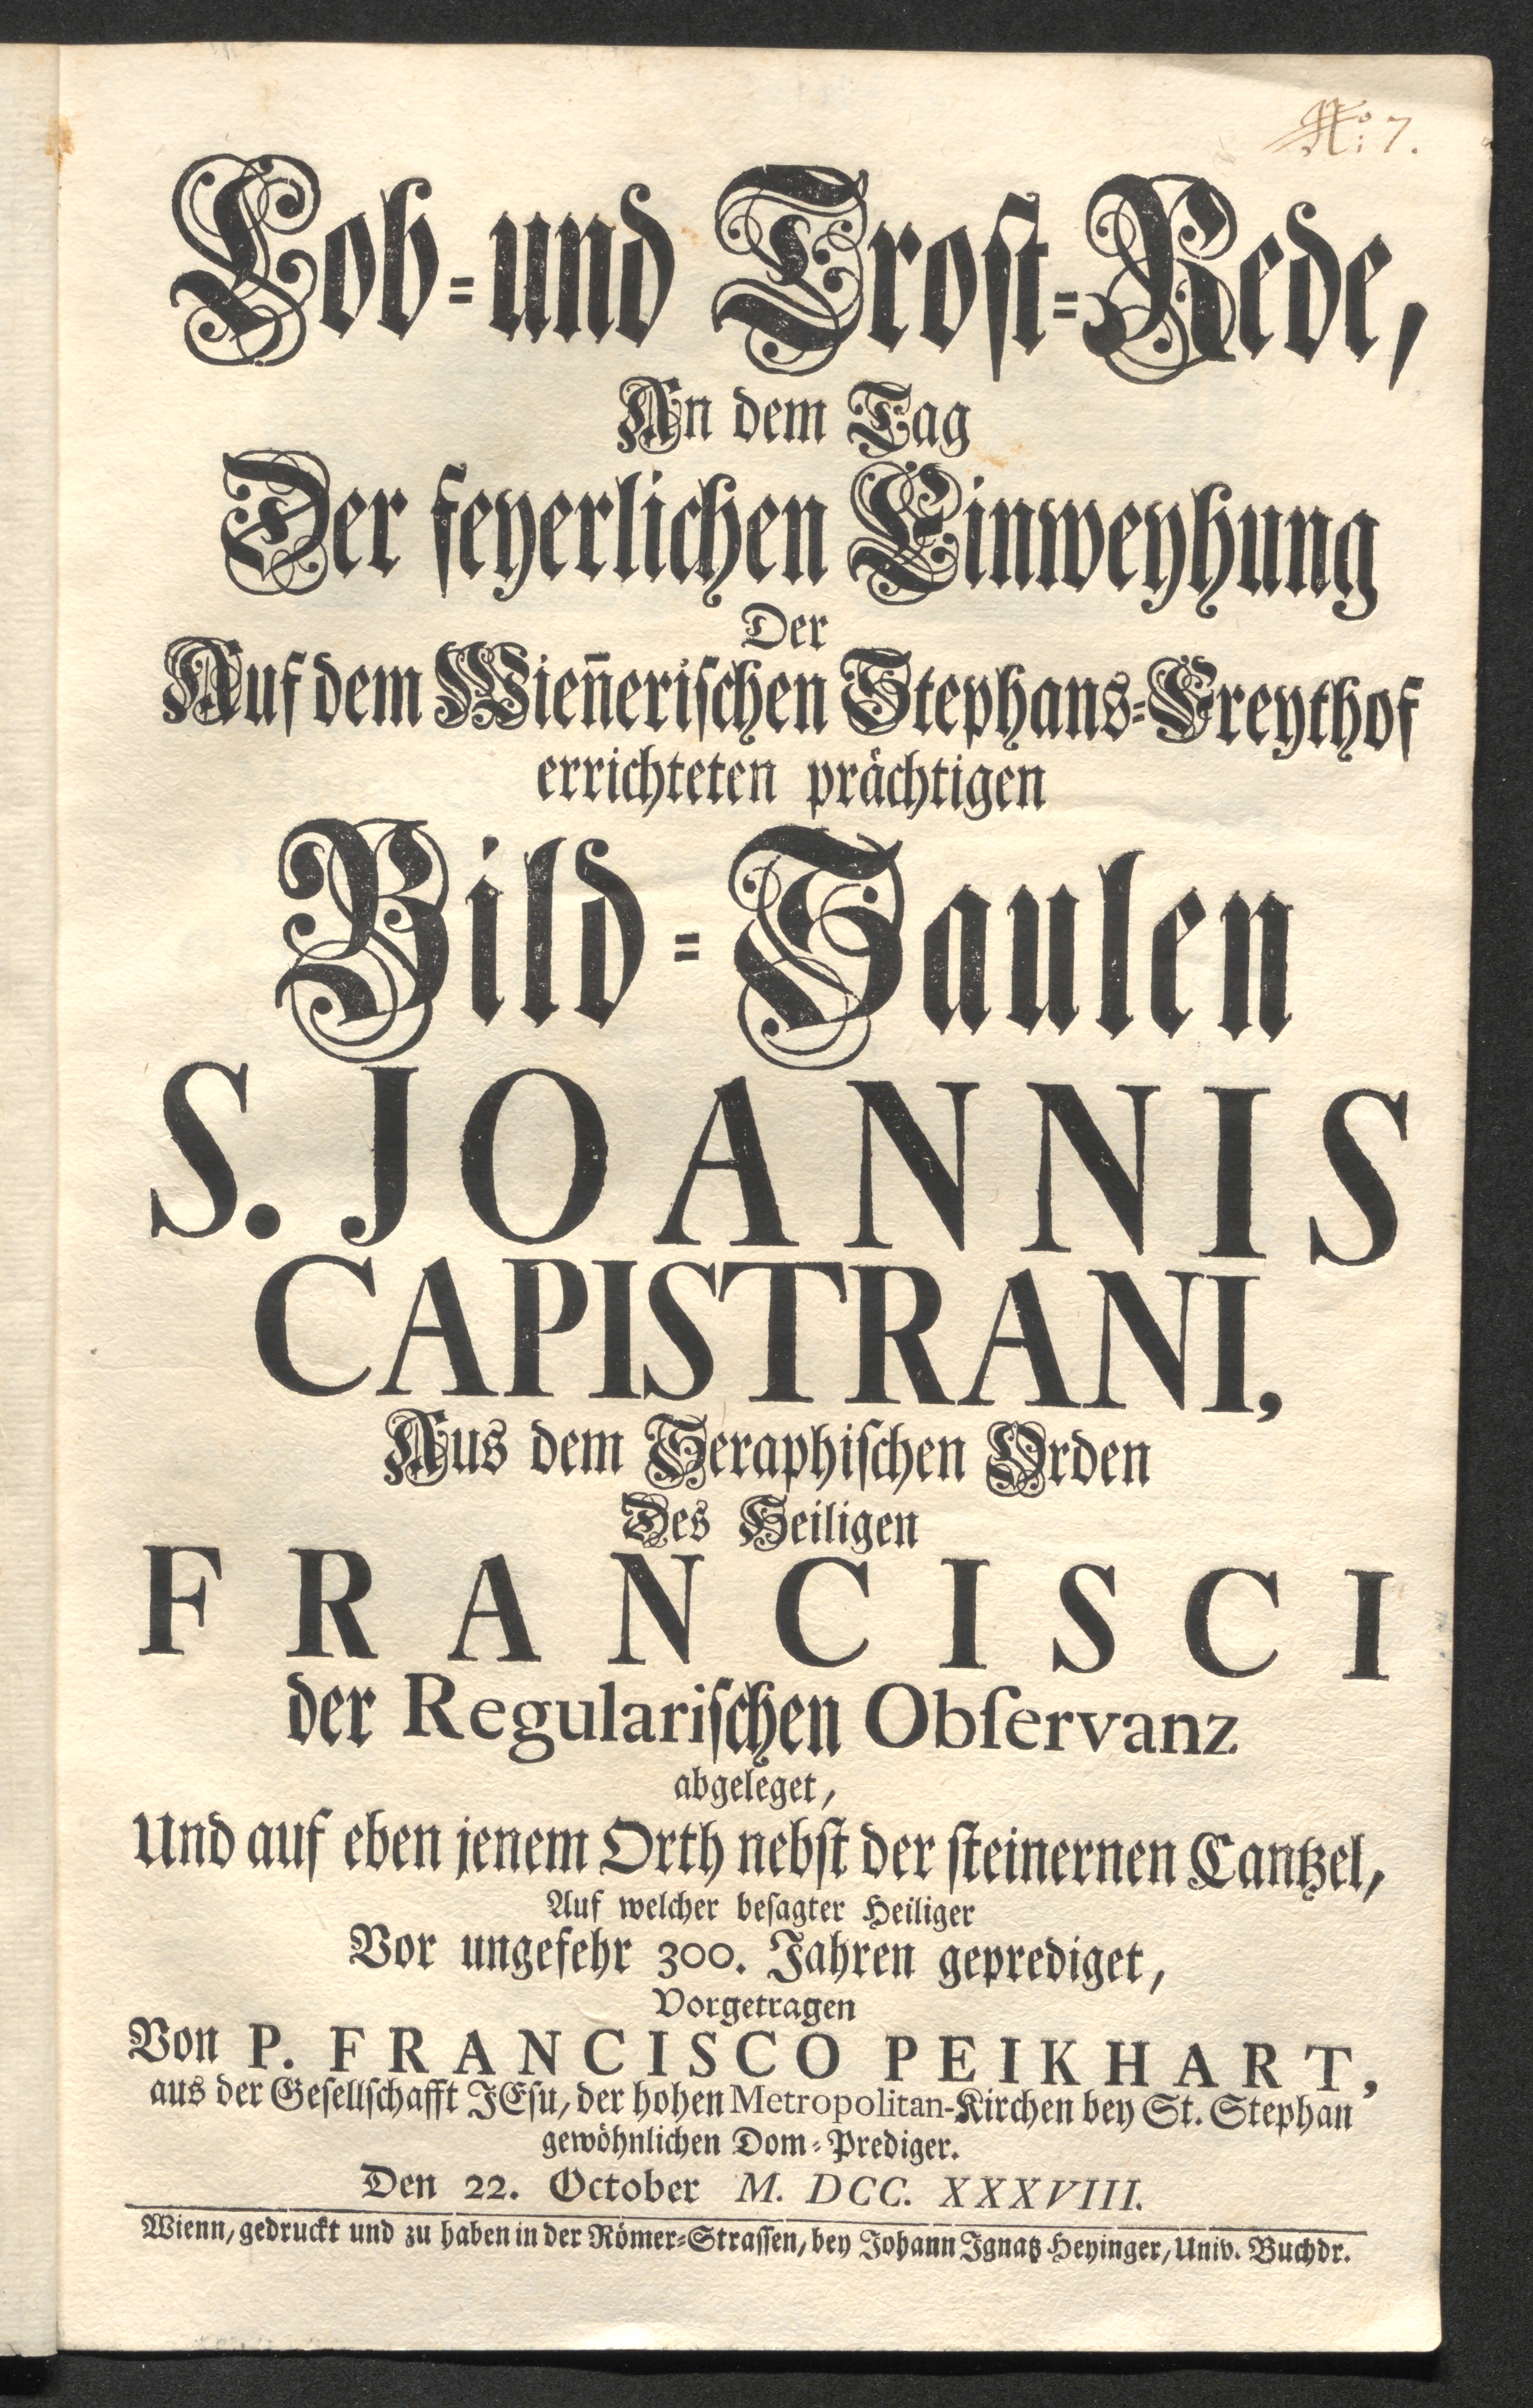 No: 7.
Lob- und Trost-Rede,
An dem Tag
Der feyerlichen Einweyhung
Der
Auf dem Wien̄erischen Stephans-Freythof
errichteten prächtigen
Bild-Saulen
S. JOANNIS
CAPISTRANI,
Aus dem Seraphischen Orden
Des Heiligen
FRANCISCI
der Regularischen Obſervanz
abgeleget,
Und auf eben jenem Orth nebst der steinernen Cantzel,
Auf welcher besagter Heiliger
Vor ungefehr 300. Jahren geprediget,
Vorgetragen
Von P. FRANCISCO PEIKHART,
aus der Gesellschafft JEsu, der hohen Metropolitan-Kirchen bey St. Stephan
gewöhnlichen Dom-Prediger.
Den 22. October M. DCC. XXXVIII.
Wienn, gedruckt und zu haben in der Römer-Strassen, bey Johann Ignatz Heyinger, Univ. Buchdr.